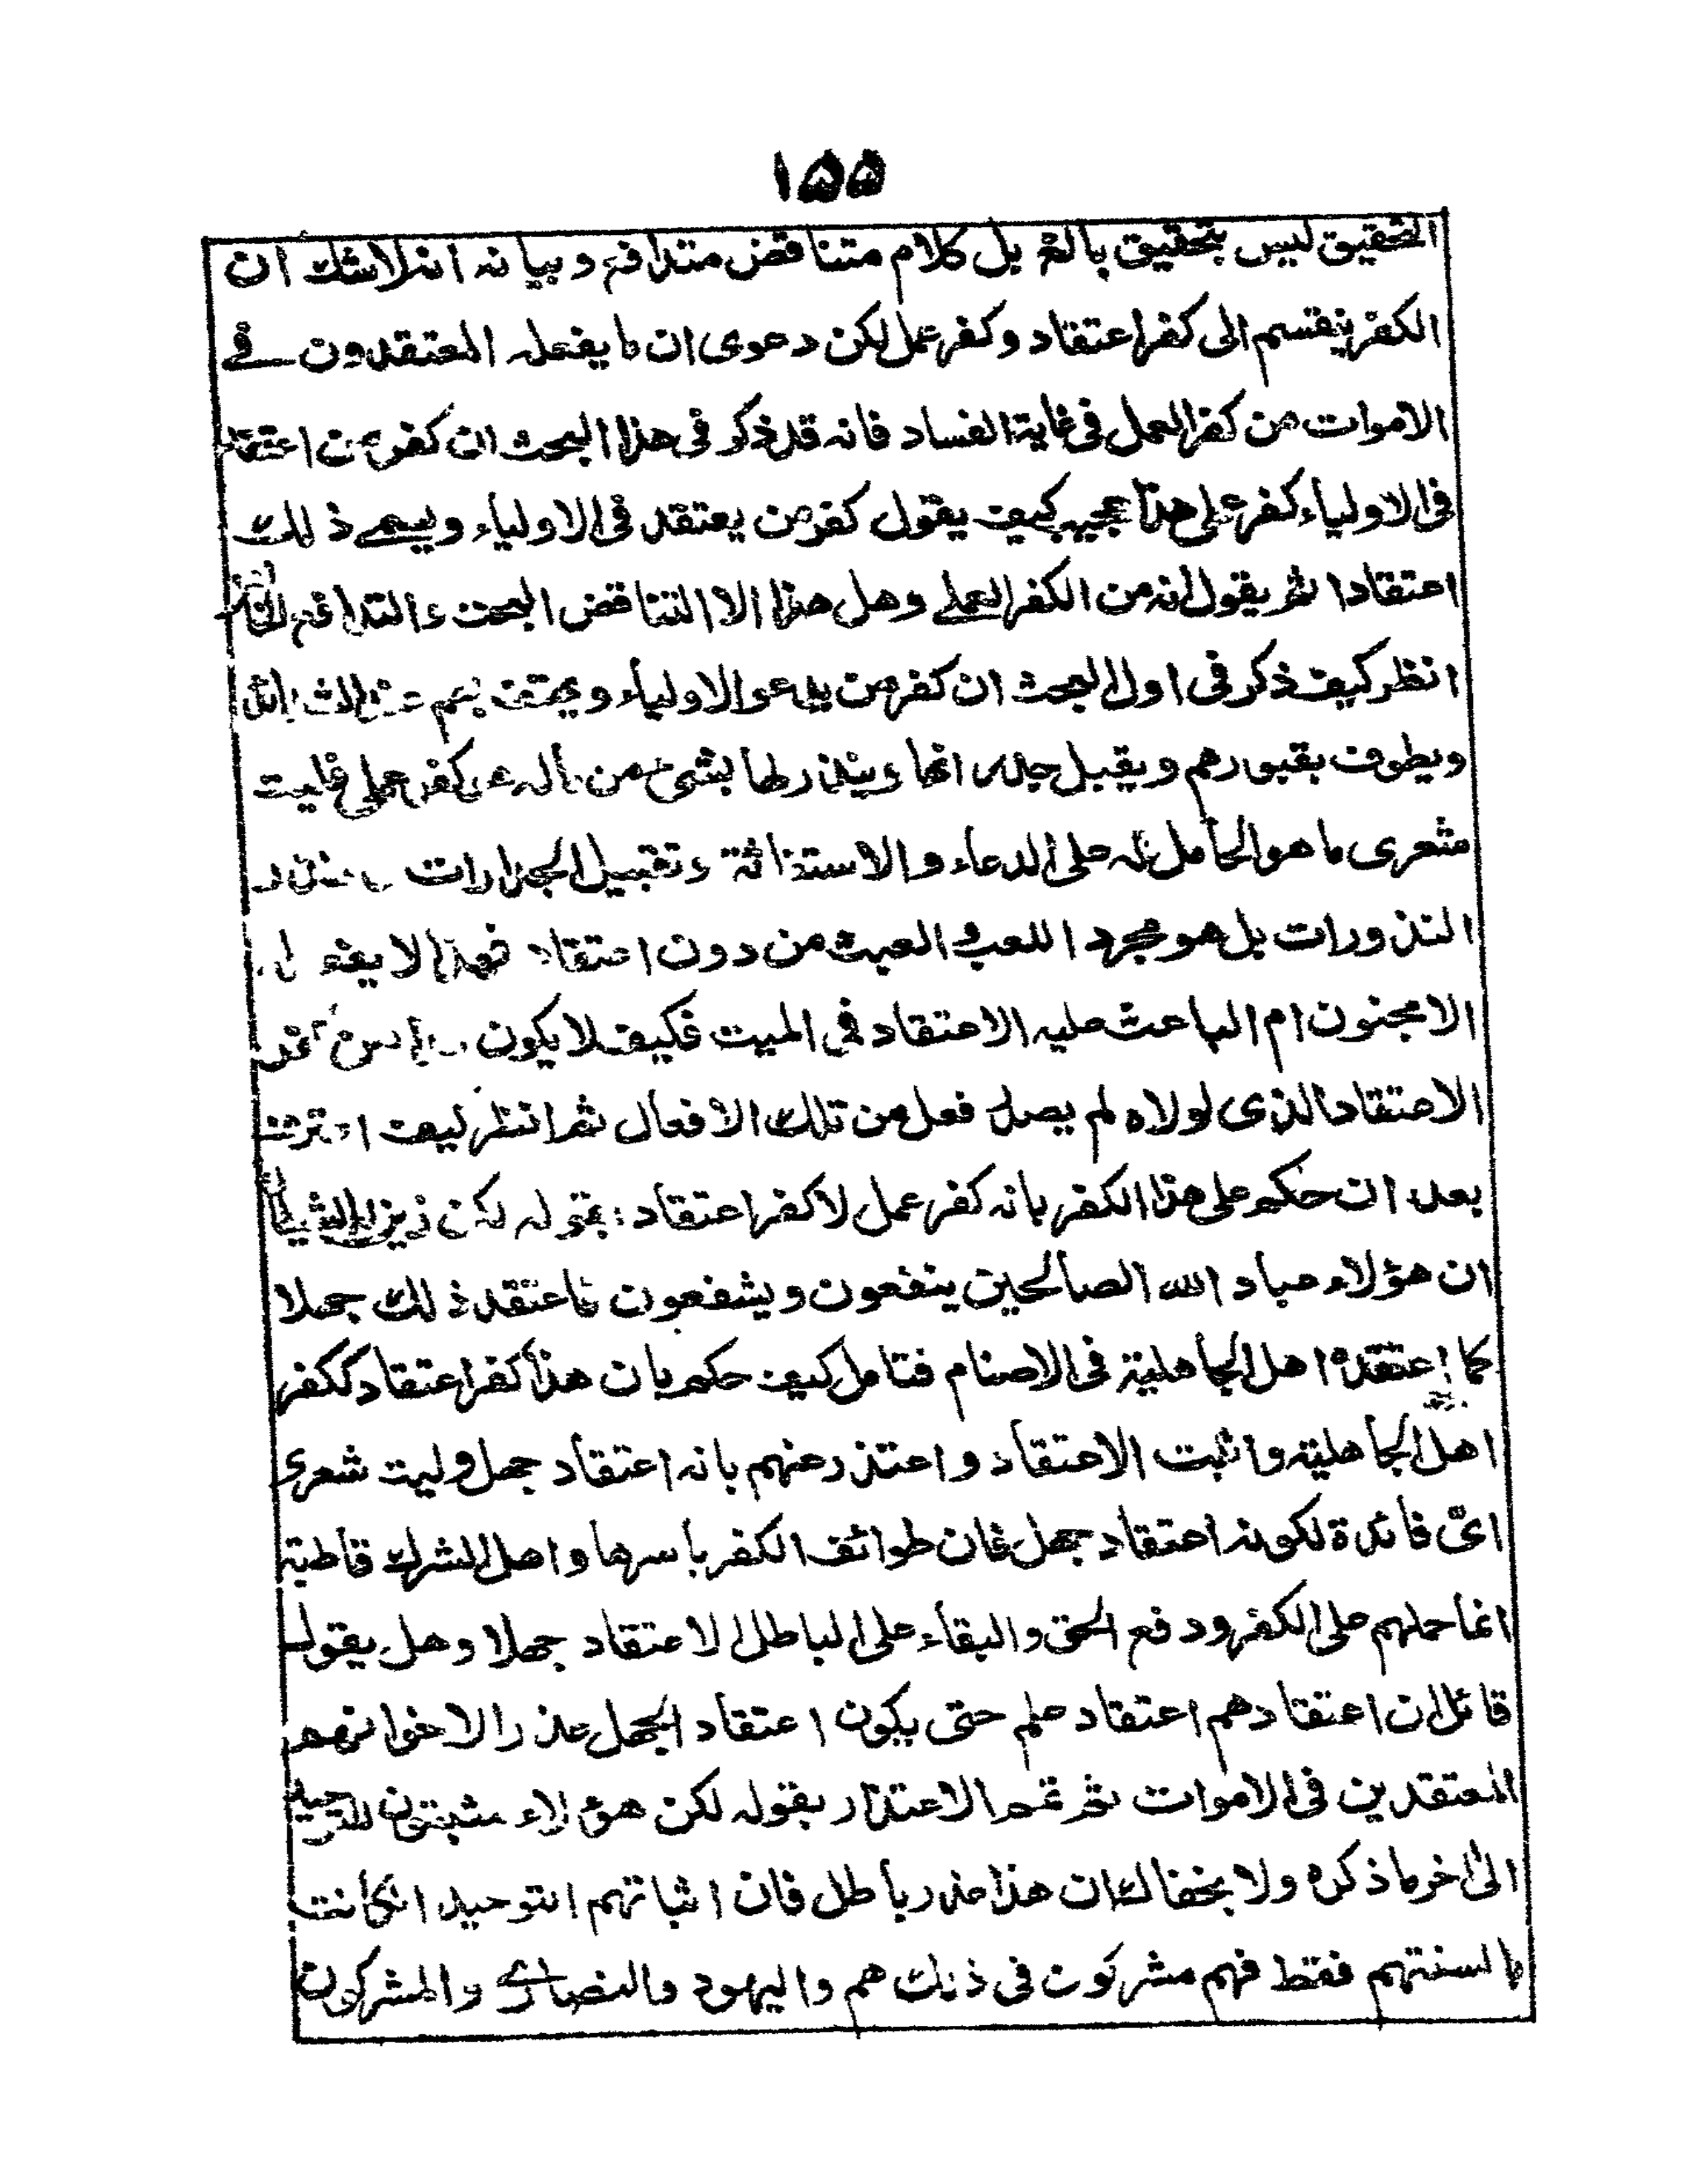 ١٥٥
التحقيق ليس بتحقيق بالغ بل كلام متناقض متدافع وبيانه انه لاشك ان
الكفر ينقسم الى كفر اعتقاد وكفر عمل لكن دعوى ان ما يفعله المعتقدون فى
الاموات من كفر العمل فى غاية الفساد فانه قد ذكر فى هذا البحث ان كفر من اعتقد
فى الاولياء كفر عملى هذا عجيب كيف يقول كفر من يعتقد فى الاولياء ويسمى ذلك
اعتقادا ثم يقول انه من الكفر العملى وهل هذا الا التناقض البحت والتدافع الخالص
انظر كيف ذكر فى اول البحث ان كفر من يدعو الاولياء ويهتف بهم عند الشدائد
ويطوف بقبورهم ويقبل جدرانها وينذر لها بشئ من ماله هو كفر عملى فليت
شعرى ما هو الحامل له على الدعاء والاستغاثة وتقبيل الجدارات ونذر
النذورات بل هو مجرد اللعب والعبث من دون اعتقاد فهذا لا يفعله
الا مجنون ام الباعث عليه الاعتقاد فى الميت فكيف لا يكون هذا من كفر
الاعتقاد الذى لولاه لم يصدر فعل من تلك الافعال ثم انظر كيف اعترف
بعد ان حكم على هذا الكفر بانه كفر عمل لا كفر اعتقاد بقوله لكن زين له الشيطان
ان هؤلاء عباد الله الصالحين ينفعون ويشفعون فاعتقد ذلك جهلا
كما اعتقده اهل الجاهلية فى الاصنام فتامل كيف حكم بان هذا كفر اعتقاد ككفر
اهل الجاهلية واثبت الاعتقاد واعتذر عنهم بانه اعتقاد جهل وليت شعرى
اى فائدة لكونه اعتقاد جهل فان طوائف الكفر باسرها واهل الشرك قاطبة
انما حملهم على الكفر ودفع الحق والبقاء على الباطل الاعتقاد جهلا وهل يقول
قائل ان اعتقادهم اعتقاد علم حتى يكون اعتقاد الجهل عذرا لاخوانهم
المعتقدين فى الاموات ثم تمم الاعتذار بقوله لكن هؤلاء مثبتون للتوحيد
الى اخر ما ذكره ولا يخفاك ان هذا عذر باطل فان اثباتهم التوحيد ان كانت
بالسنتهم فقط فهم مشركون فى ذلك هم واليهود والنصارى والمشركون